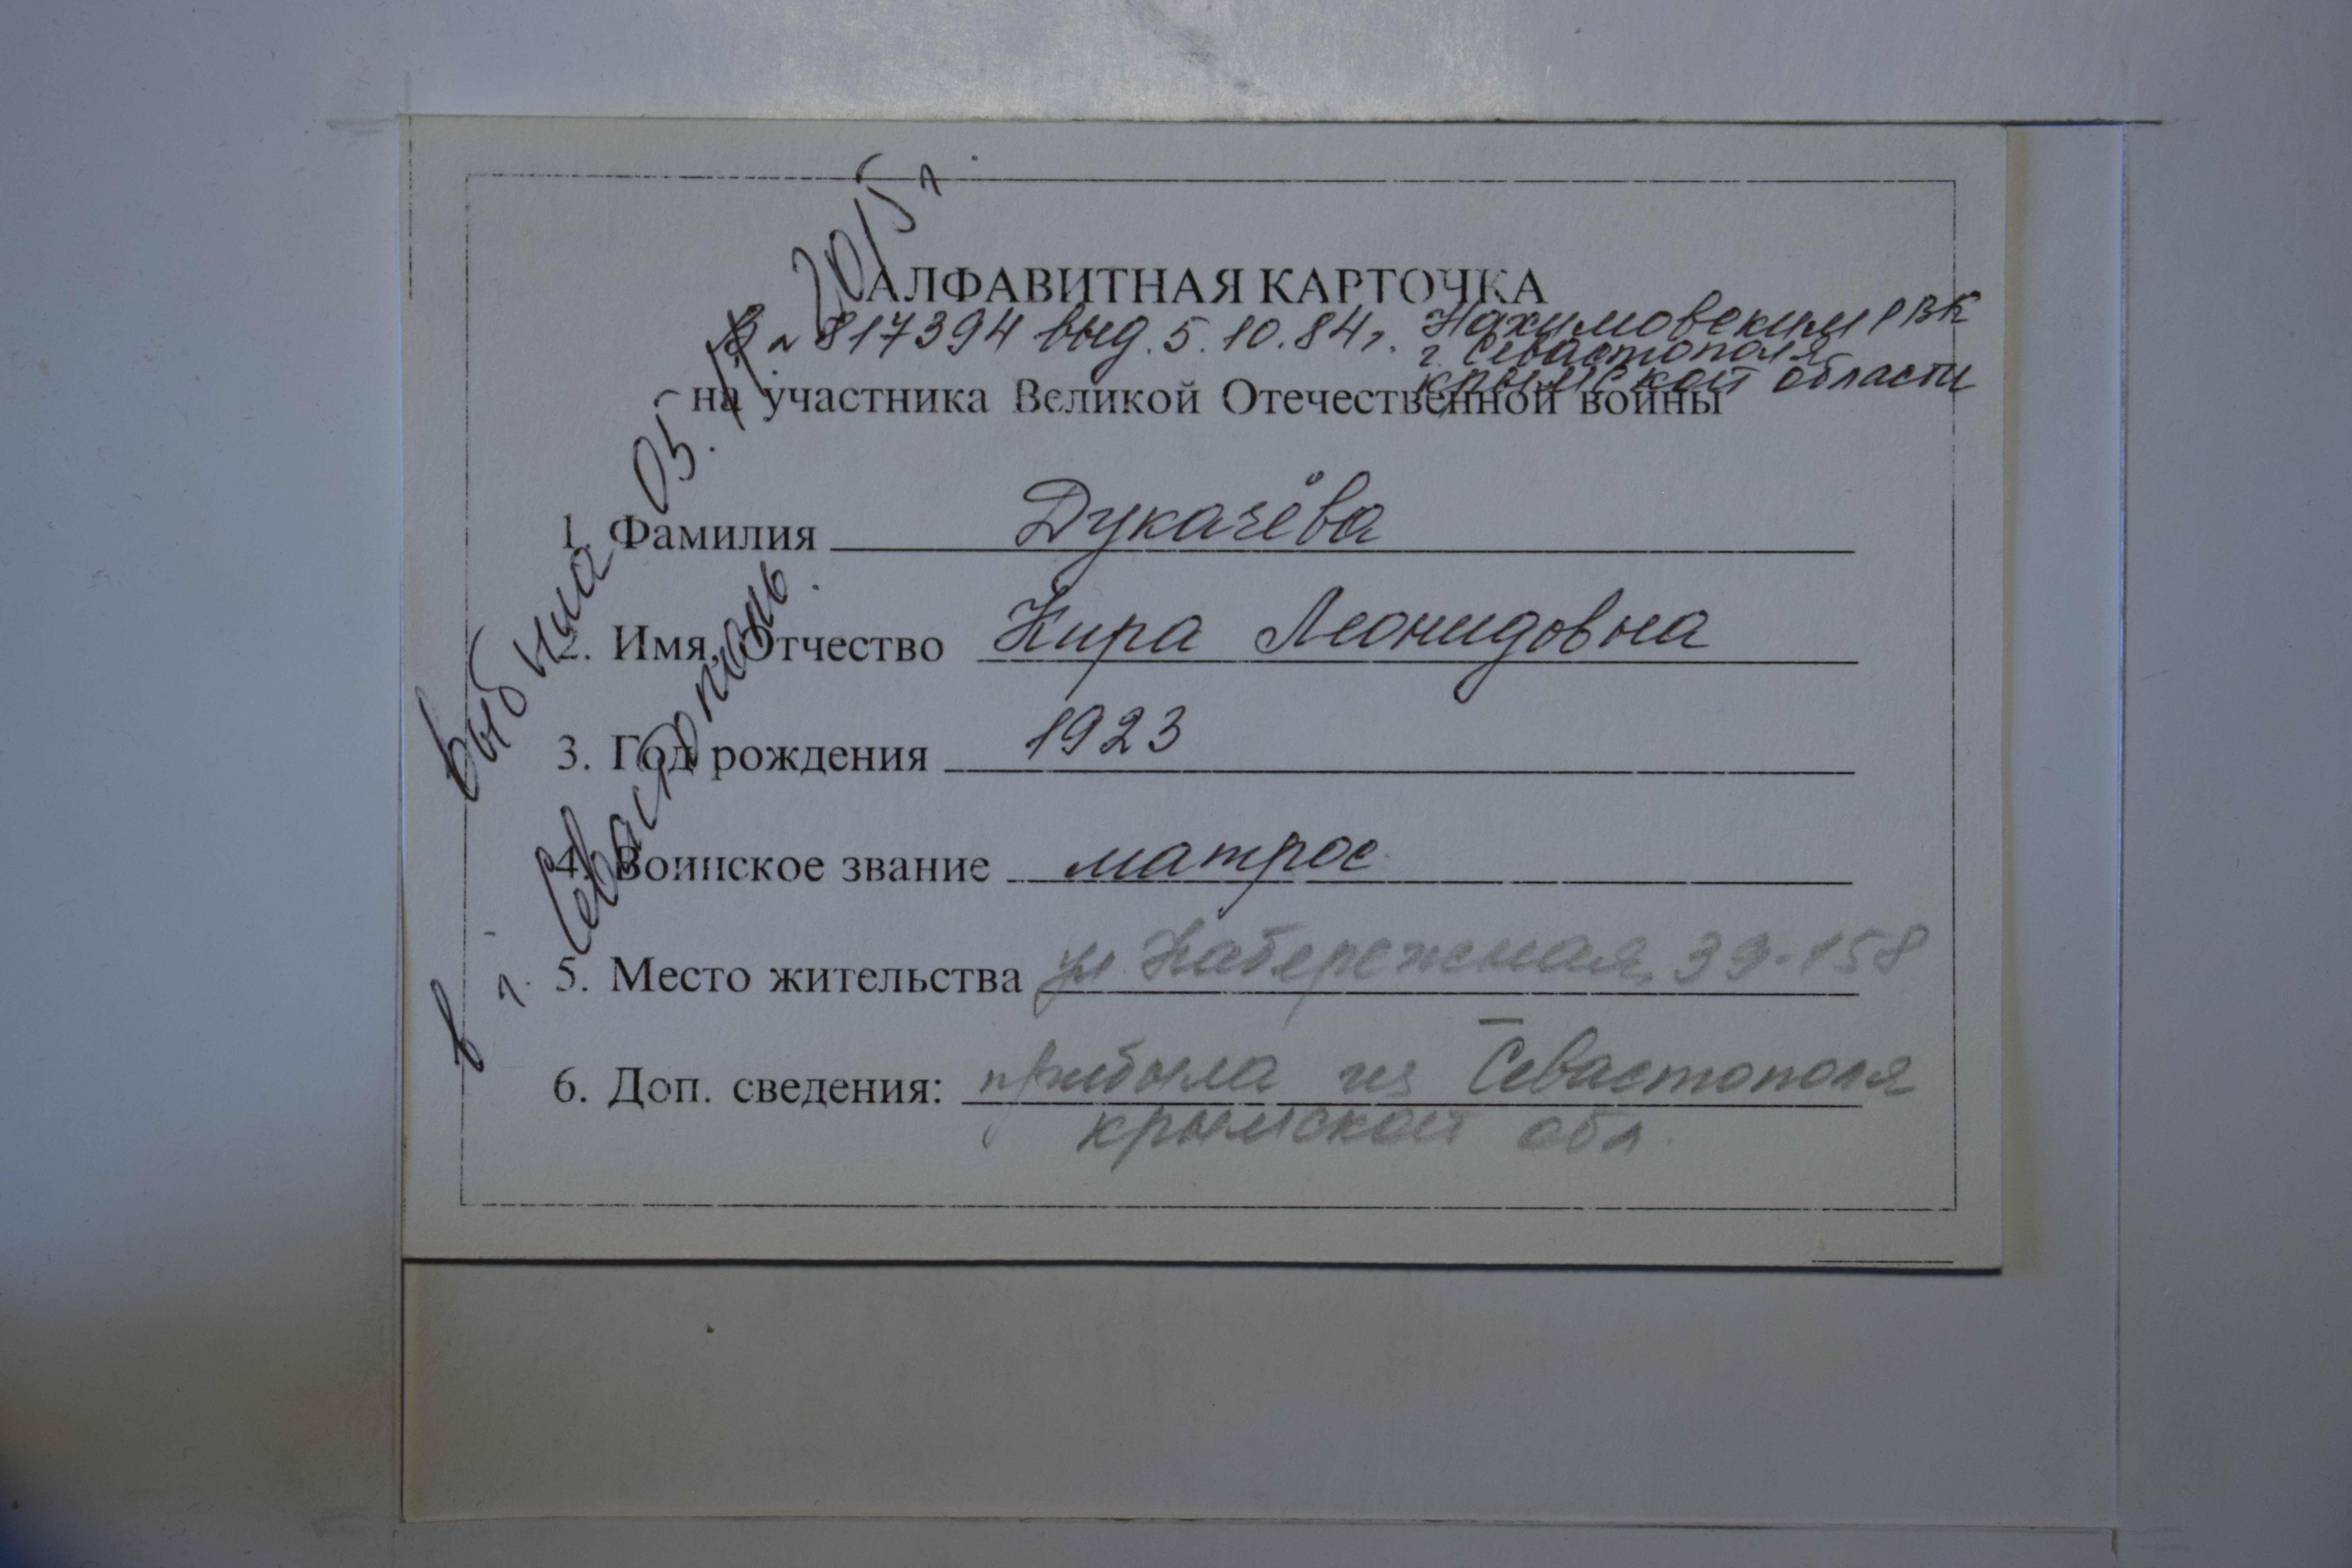 АЛФАВИТНАЯ КАРТОЧКА
В № 817394 выд. 5.10.84г. Нахимовским РВК
г. Севастополя
крымской области
на участника Великой Отечественной войны
1. Фамилия Дукачёва
2. Имя, Отчество Кира Леонидовна
3. Год рождения 1923
4. Воинское звание матрос
5. Место жительства ул. Набережная, 39-158
6. Доп. сведения: прибыла из Севастополя
крымской обл.
выбыла 05.11.2015г.
в г. Севастополь.